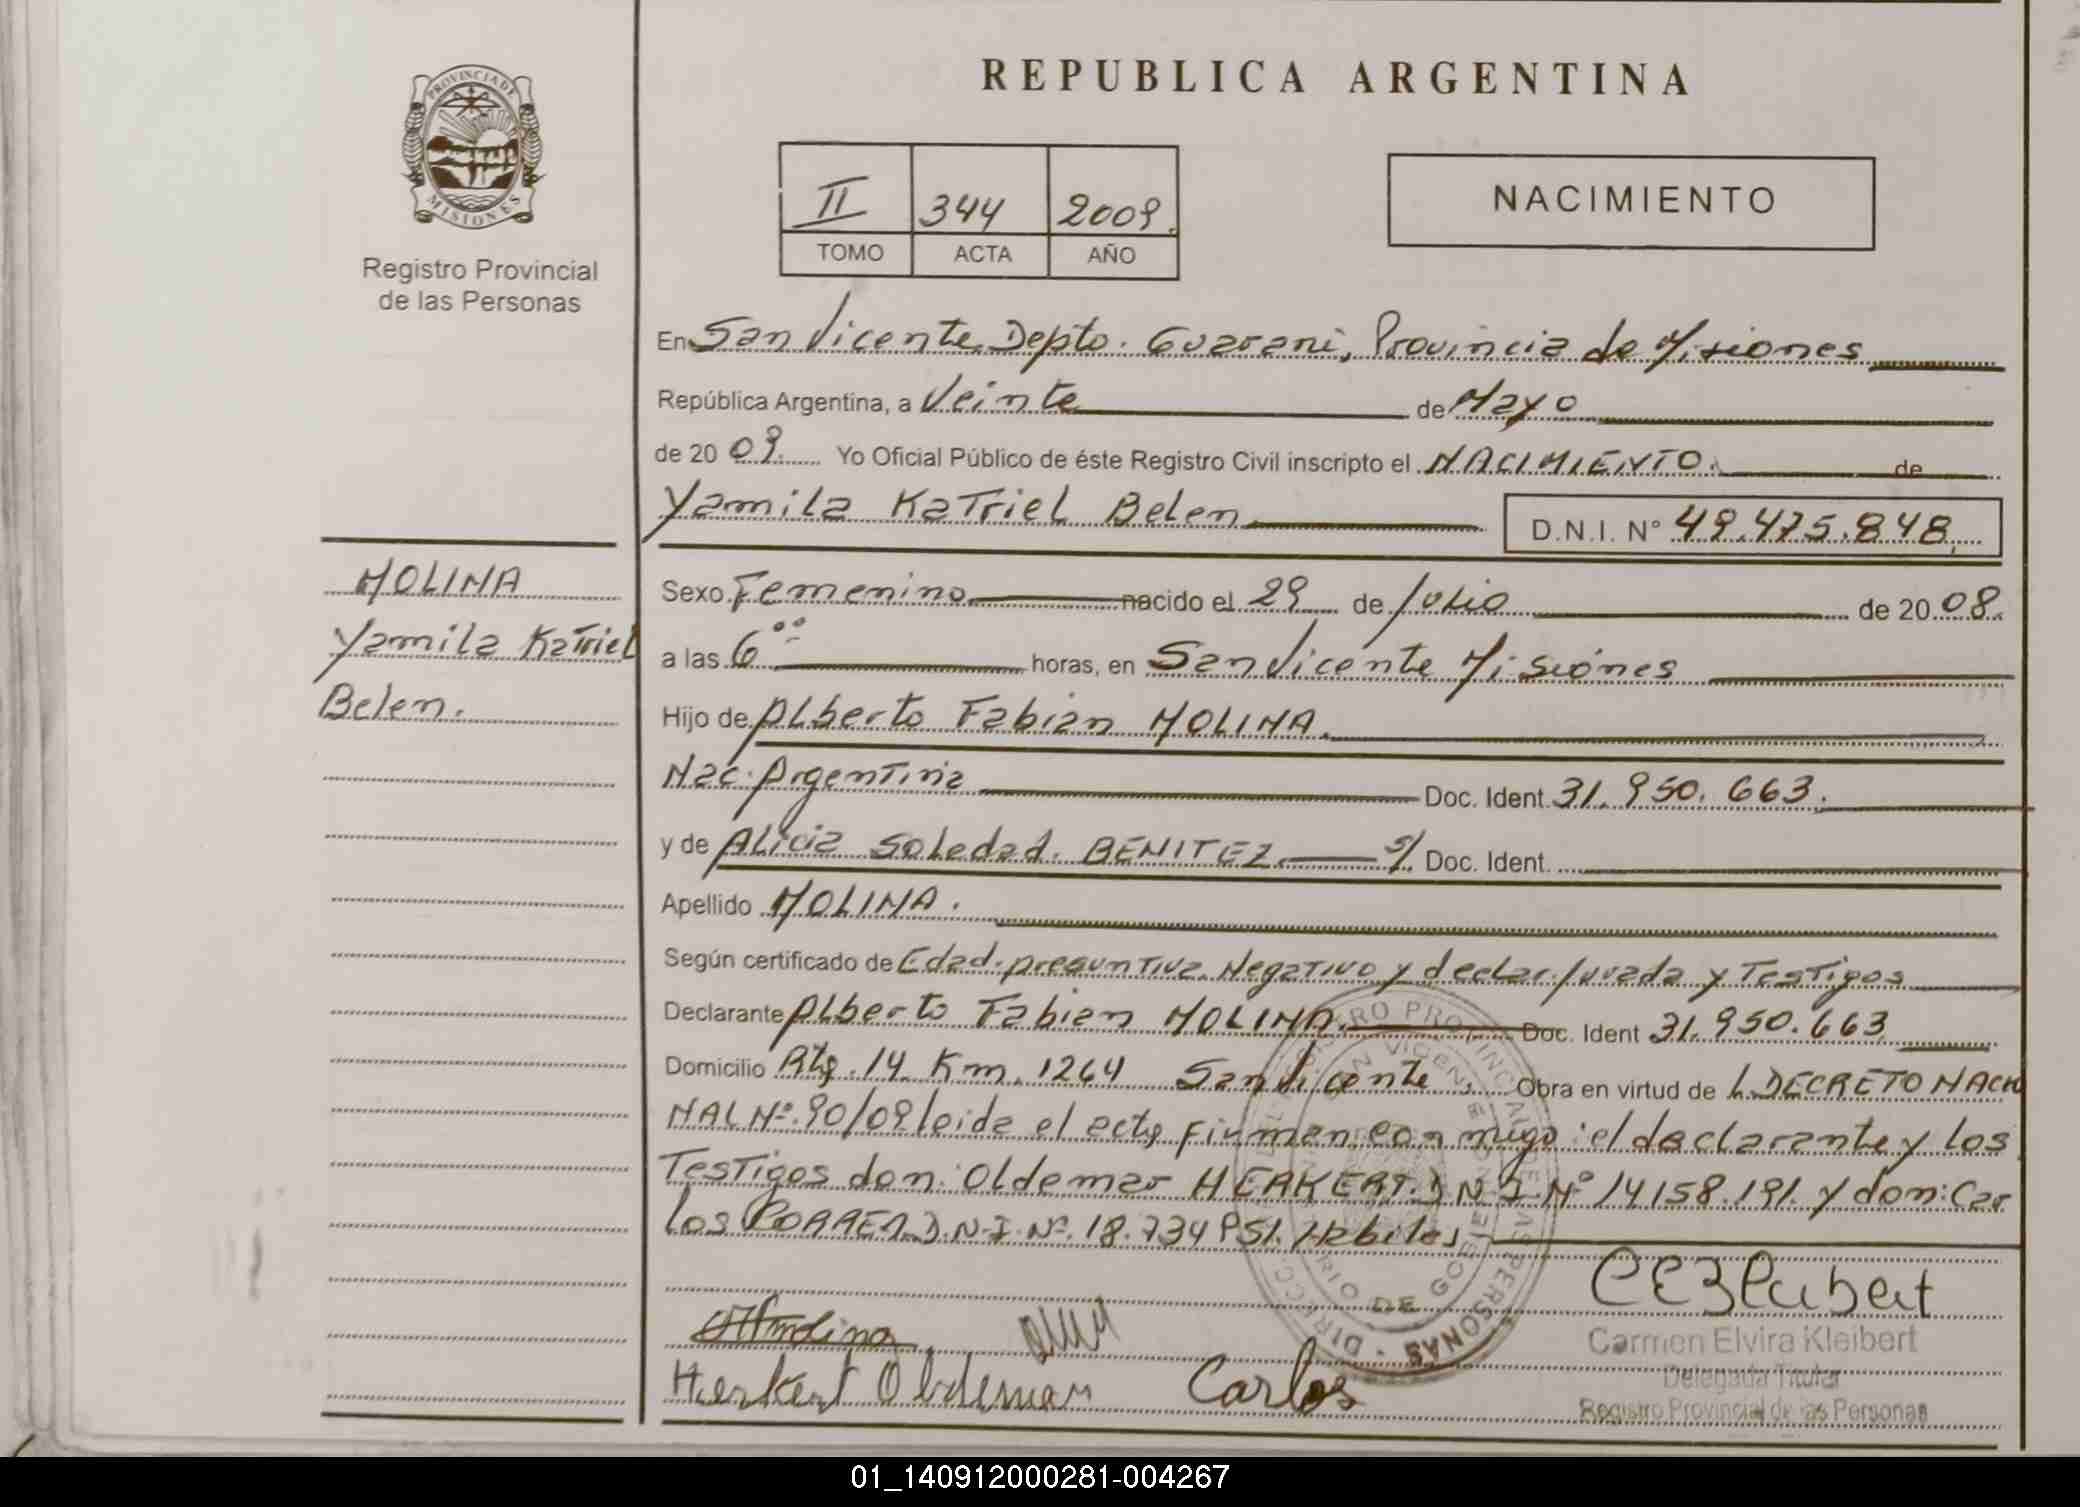 PROVINCIA DE
MISIONES
Registro Provincial
de las Personas
MOLINA
Yamila Katriel
Belen.
REPUBLICA ARGENTINA
II 344 2009.
TOMO ACTA AÑO
NACIMIENTO
En San Vicente, Depto. Guarani, Provincia de Misiones
República Argentina, a Veinte de Mayo
de 20 09. Yo Oficial Público de éste Registro Civil inscripto el NACIMIENTO. de
Yamila Katriel Belen D.N.I. N° 49.475.848
Sexo Femenino nacido el 29 de Julio de 20 08.
a las 6°° horas, en San Vicente Misiones
Hijo de Alberto Fabian MOLINA.
Nac. Argentina Doc. Ident. 31.950.663.
y de Alicia Soledad. BENITEZ. s/ Doc. Ident.
Apellido MOLINA.
Según certificado de Edad. presuntiva, Negativo y declar. Jurada y Testigos
Declarante Alberto Fabian MOLINA. Doc. Ident 31.950.663
Domicilio Rta. 14 Km. 1264 San Vicente. Obra en virtud de L DECRETO NACIO
NAL Nº. 90/09 leida el acta, firman con migo: el declarante y los
Testigos don: Oldemar HERKERT. D.N.I. Nº 14.158.191. y don: Car
los D.N.I. Nº. 18.734.951. Habiles
CEKleibert
Carmen Elvira Kleibert
Delegada Titular
Registro Provincial de las Personas
Molina
Herkert Oldemar Carlos
01_140912000281-004267